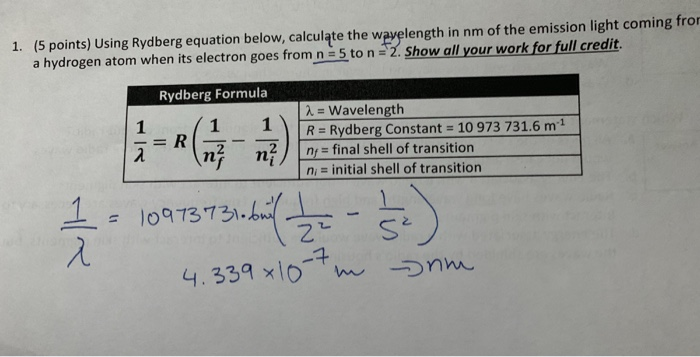 1. (5 points) Using Rydberg equation below, calculate the wavelength in nm of the emission light coming from
a hydrogen atom when its electron goes from n = 5 to n = 2. Show all your work for full credit.
Rydberg Formula
1/λ = R(1/n_f² − 1/n_i²)
λ = Wavelength
R = Rydberg Constant = 10 973 731.6 m⁻¹
n_f = final shell of transition
n_i = initial shell of transition
1/λ = 10973731.6m⁻¹(1/2² − 1/5²)
4.339 ×10⁻⁷ m → nm